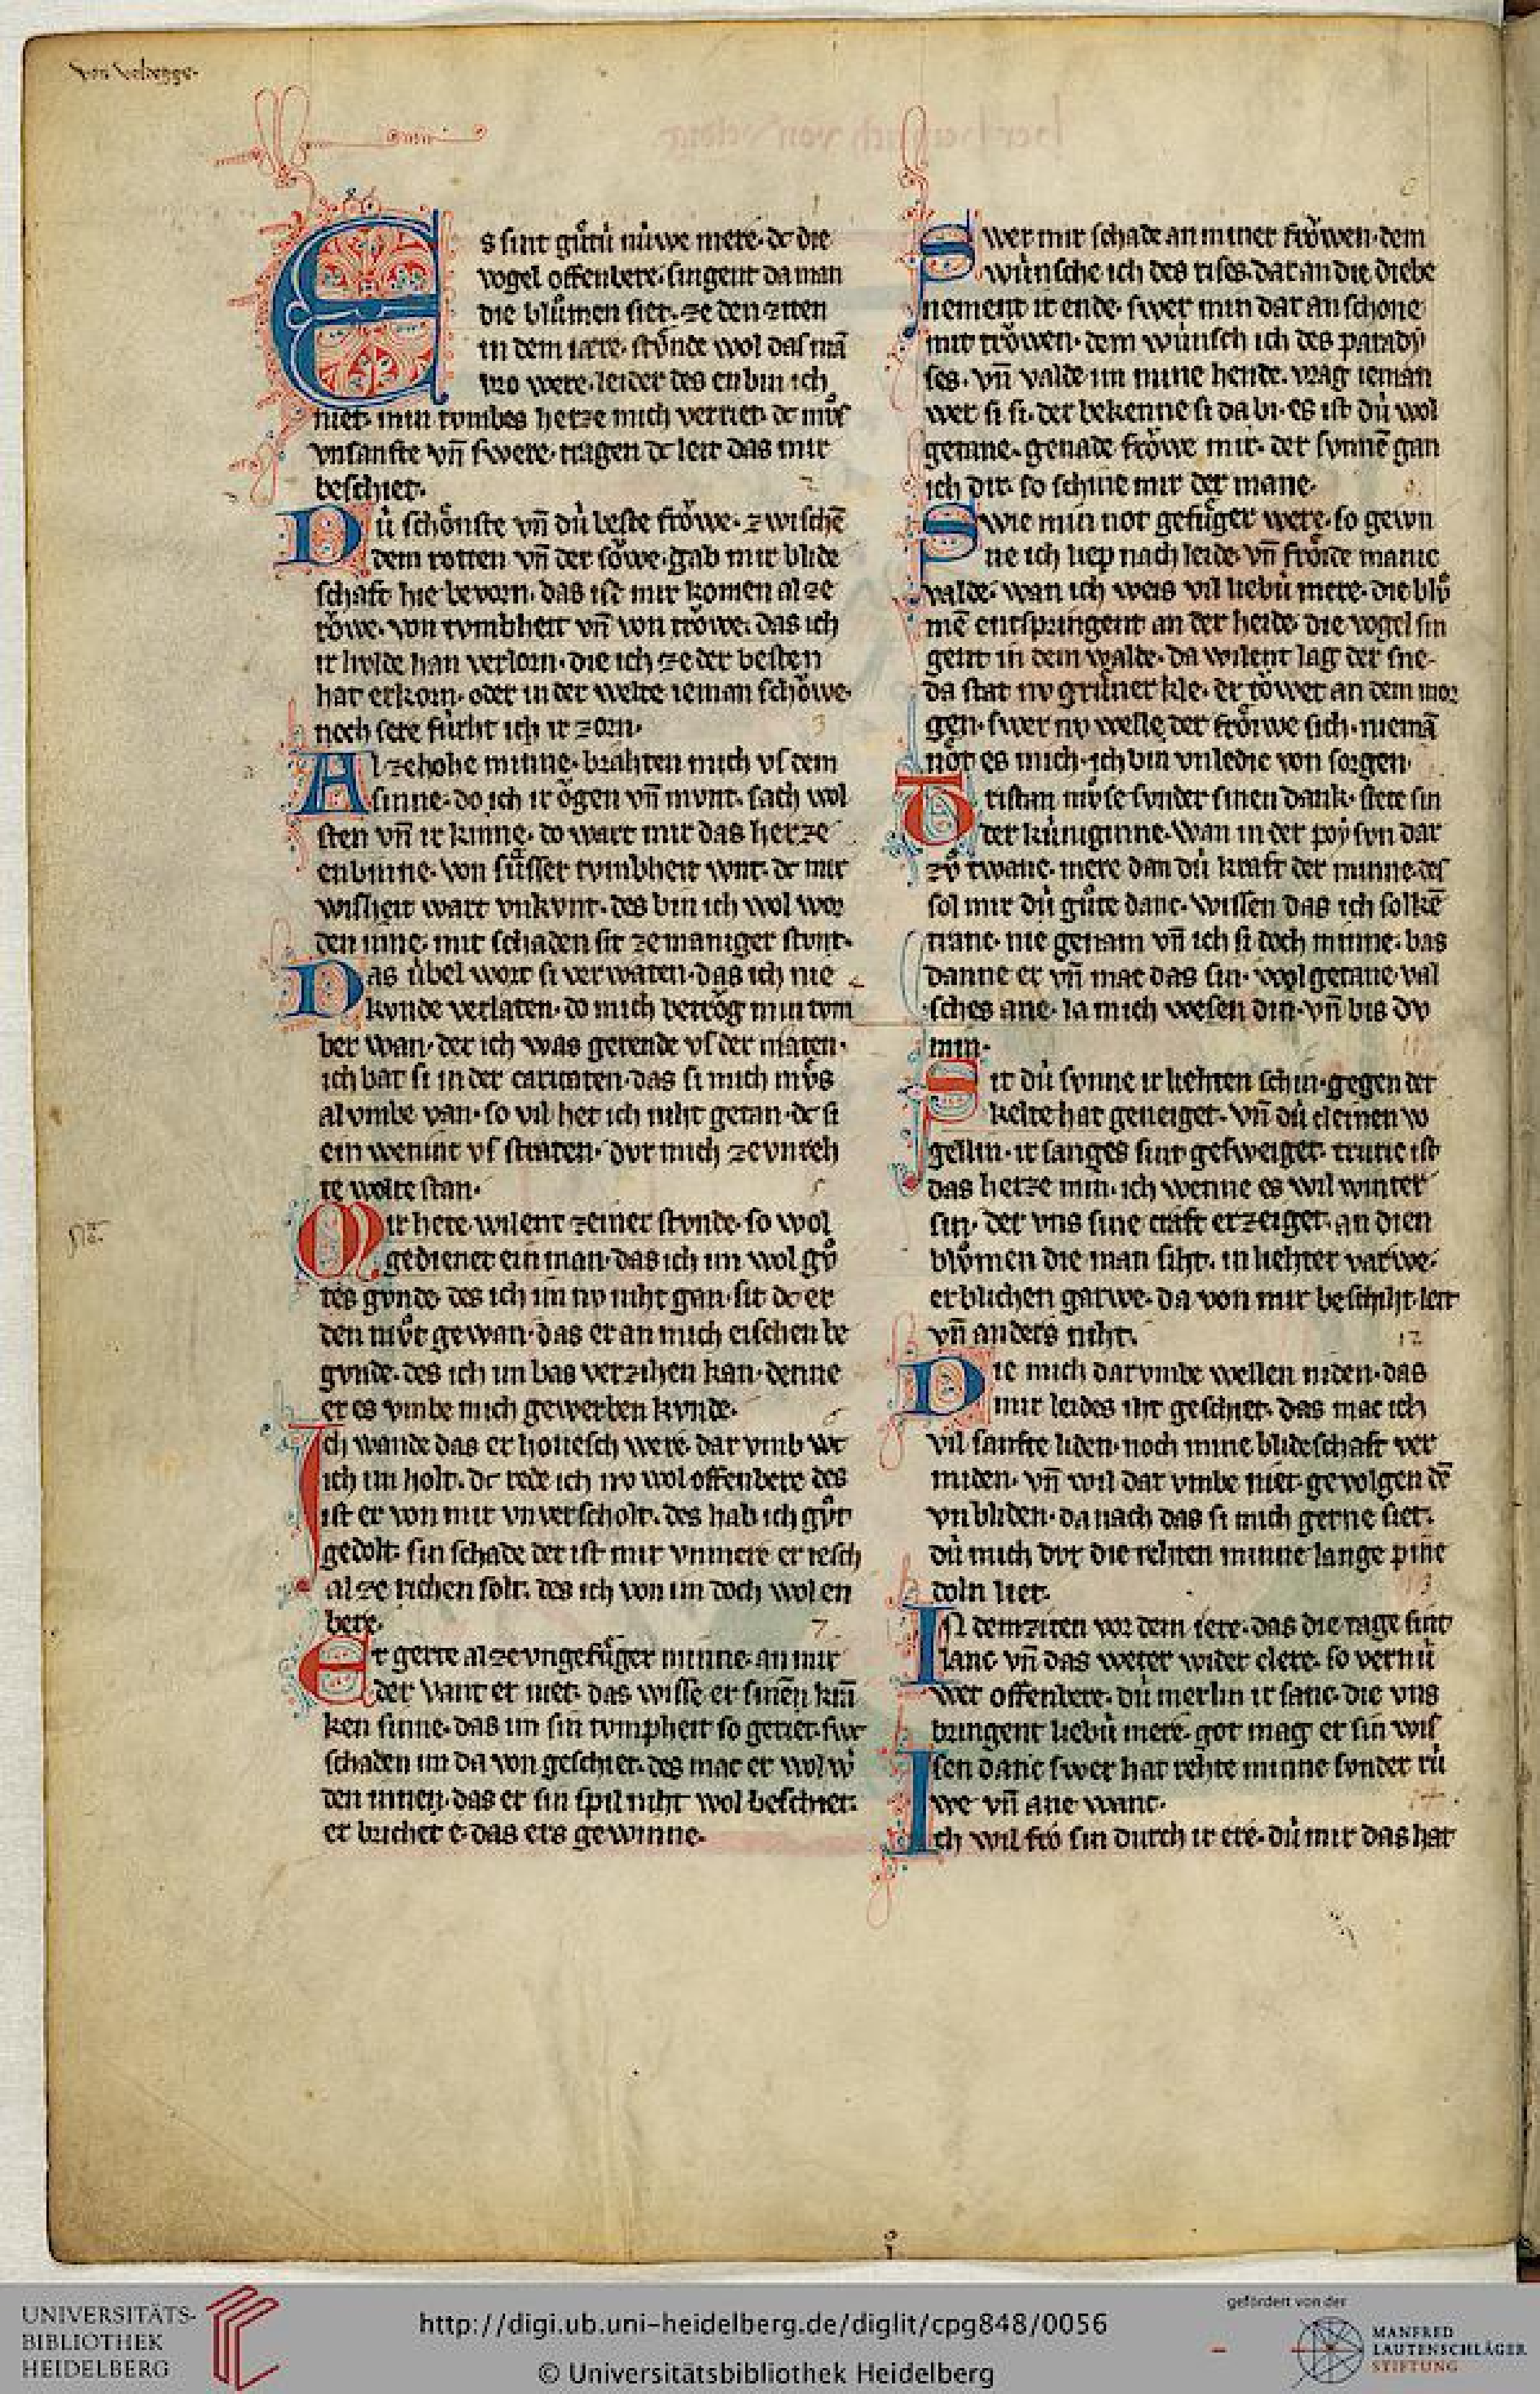 Von Veldegge·
Es sint gu̍tú núwe mere· dc die
vogel offenbere· singent da man
die blůmen siet· ze den ziten
in dem iare· stůnde wol das mā
vro were· leider des enbin ich
niet· min tombes herze mich verriet· dc můs
vnsanfte vn̄ swere· tragen dc leit das mir
beschiet·
Dú schȯnste vn̄ dú beste frȯwe· zwischē
dem rotten vn̄ der sȯwe· gab mir blide
schaft hie bevorn· das ist mir komen al ze
rȯwe· von tvmbheit vn̄ von trȯwe· das ich
ir hvlde han verlorn· die ich ze der besten
hat erkorn· oder in der welte ieman schȯwe·
noch sere fúrht ich ir zorn·
Al ze hohe minne· brahten mich vs dem
sinne· do ich ir ȯgen vn̄ mvnt· sach wol
sten vn̄ ir kinne· do wart mir das herze
enbinne· von sůsser tvmbheit wnt· dc mir
wisheit wart vnkvnt· des bin ich wol wor
den inne· mit schaden sit ze maniger stvnt·
Das úbel wort si verwaten· das ich nie
kvnde verlaten· do mich betrȯg min tvm
ber wan· der ich was gerende vs der maten·
ich bat si in der caritaten· das si mich mv̊s
al vmbe van· so vil het ich niht getan· dc si
ein weninc vs straten· dvr mich ze vnreh
te wolte stan·
Mir hete wilent zeiner stvnde· so wol
gedienet ein man· das ich im wol gv̊
tes gvnde· des ich im nv niht gan· sit dc er
den mv̊t gewan· das er an mich eischen be
gvnde· des ich im bas verzihen kan· denne
er es vmbe mich gewerben kvnde·
Ich wande das er houesch were· dar vmb wc
ich im holt· dc rede ich nv wol offenbere des
ist er von mir vnverscholt· des hab ich gv̊t
gedolt· sin schade der ist mir vnmere er iesch
al ze richen solt· des ich von im doch wol en
bere·
Er gerte al ze vngefůger minne· an mir
der vant er niet· das wisse er sinen kin̄
ken sinne· das im sin tvmpheit so geriet· swc
schaden im da von geschiet· des mac er wol w̍
den innen· das er sin spil niht wol beschiet·
er brichet e· das ers gewinne·
Swer mir schade an miner frȯwen· dem
wúnsche ich des rises· dar an die diebe
nement ir ende· swer min dar an schone
mit trȯwen· dem wúnsch ich des parady
ses· vn̄ valde im mine hende· vrag ieman
wer si si· der bekenne si da bi· es ist dú wol
getane· genade frȯwe mir· der svnnē gan
ich dir· so schine mir der mane·
Swie min not gefůger were· so gewn
ne ich liep nach leide· vn̄ frȯide manic
valde· wan ich weis vil liebú mere· die blv̊
mē entspringent an der heide· die vogel sin
gent in dem walde· da wilent lag der sne·
da stat nv grůner kle· er tȯwet an dem mor
gen· swer nv welle der frȯiwe sich· niemā
nȯt es mich· ich bin vnledic von sorgen·
Tristan mv̊se svnder sinen dank· stete sin
der kúniginne· wan in der poyson dar
zv̊ twanc· mere dan dú kraft der minne· des
sol mir dú gůte danc· wissen das ich solkē
tranc· nie genam vn̄ ich si doch minne· bas
danne er vn̄ mac das sin· wol getane· val
sches ane· la mich wesen din· vn̄ bis dv
min·
Sit dú svnne ir liehten schin· gegen der
kelte hat geneiget· vn̄ dú cleinen vo
gellin· ir sanges sint gesweiget· truric ist
das herze min· ich wenne es wil winter
sin· der vns sine craft erzeiget· an dien
blv̊men die man siht· in liehter varwe·
erblichen garwe· da von mir beschiht· leit
vn̄ anders niht·
Die mich darvmbe wellen niden· das
mir leides iht geschiet· das mac ich
vil sanfte liden· noch mine blideschaft ver
miden· vn̄ wil dar vmbe niet· gevolgen dē
vnbliden· da nach das si mich gerne siet·
dú mich dvr die rehten minne lange pine
doln liet·
IN dem ziten vor dem iere· das die tage sint
lanc vn̄ das weter wider clere· so vernú
wet offenbere· dú merlin ir sanc· die vns
bringent liebú mere· got mag er sin wis
sen danc swer hat rehte minne svnder rú
we vn̄ ane wanc·
Ich wil fro sin durch ir ere· dú mir das hat
UNIVERSITÄTS-
BIBLIOTHEK
HEIDELBERG
http://digi.ub.uni-heidelberg.de/diglit/cpg848/0056
© Universitätsbibliothek Heidelberg
gefördert von der
MANFRED
LAUTENSCHLÄGER
STIFTUNG